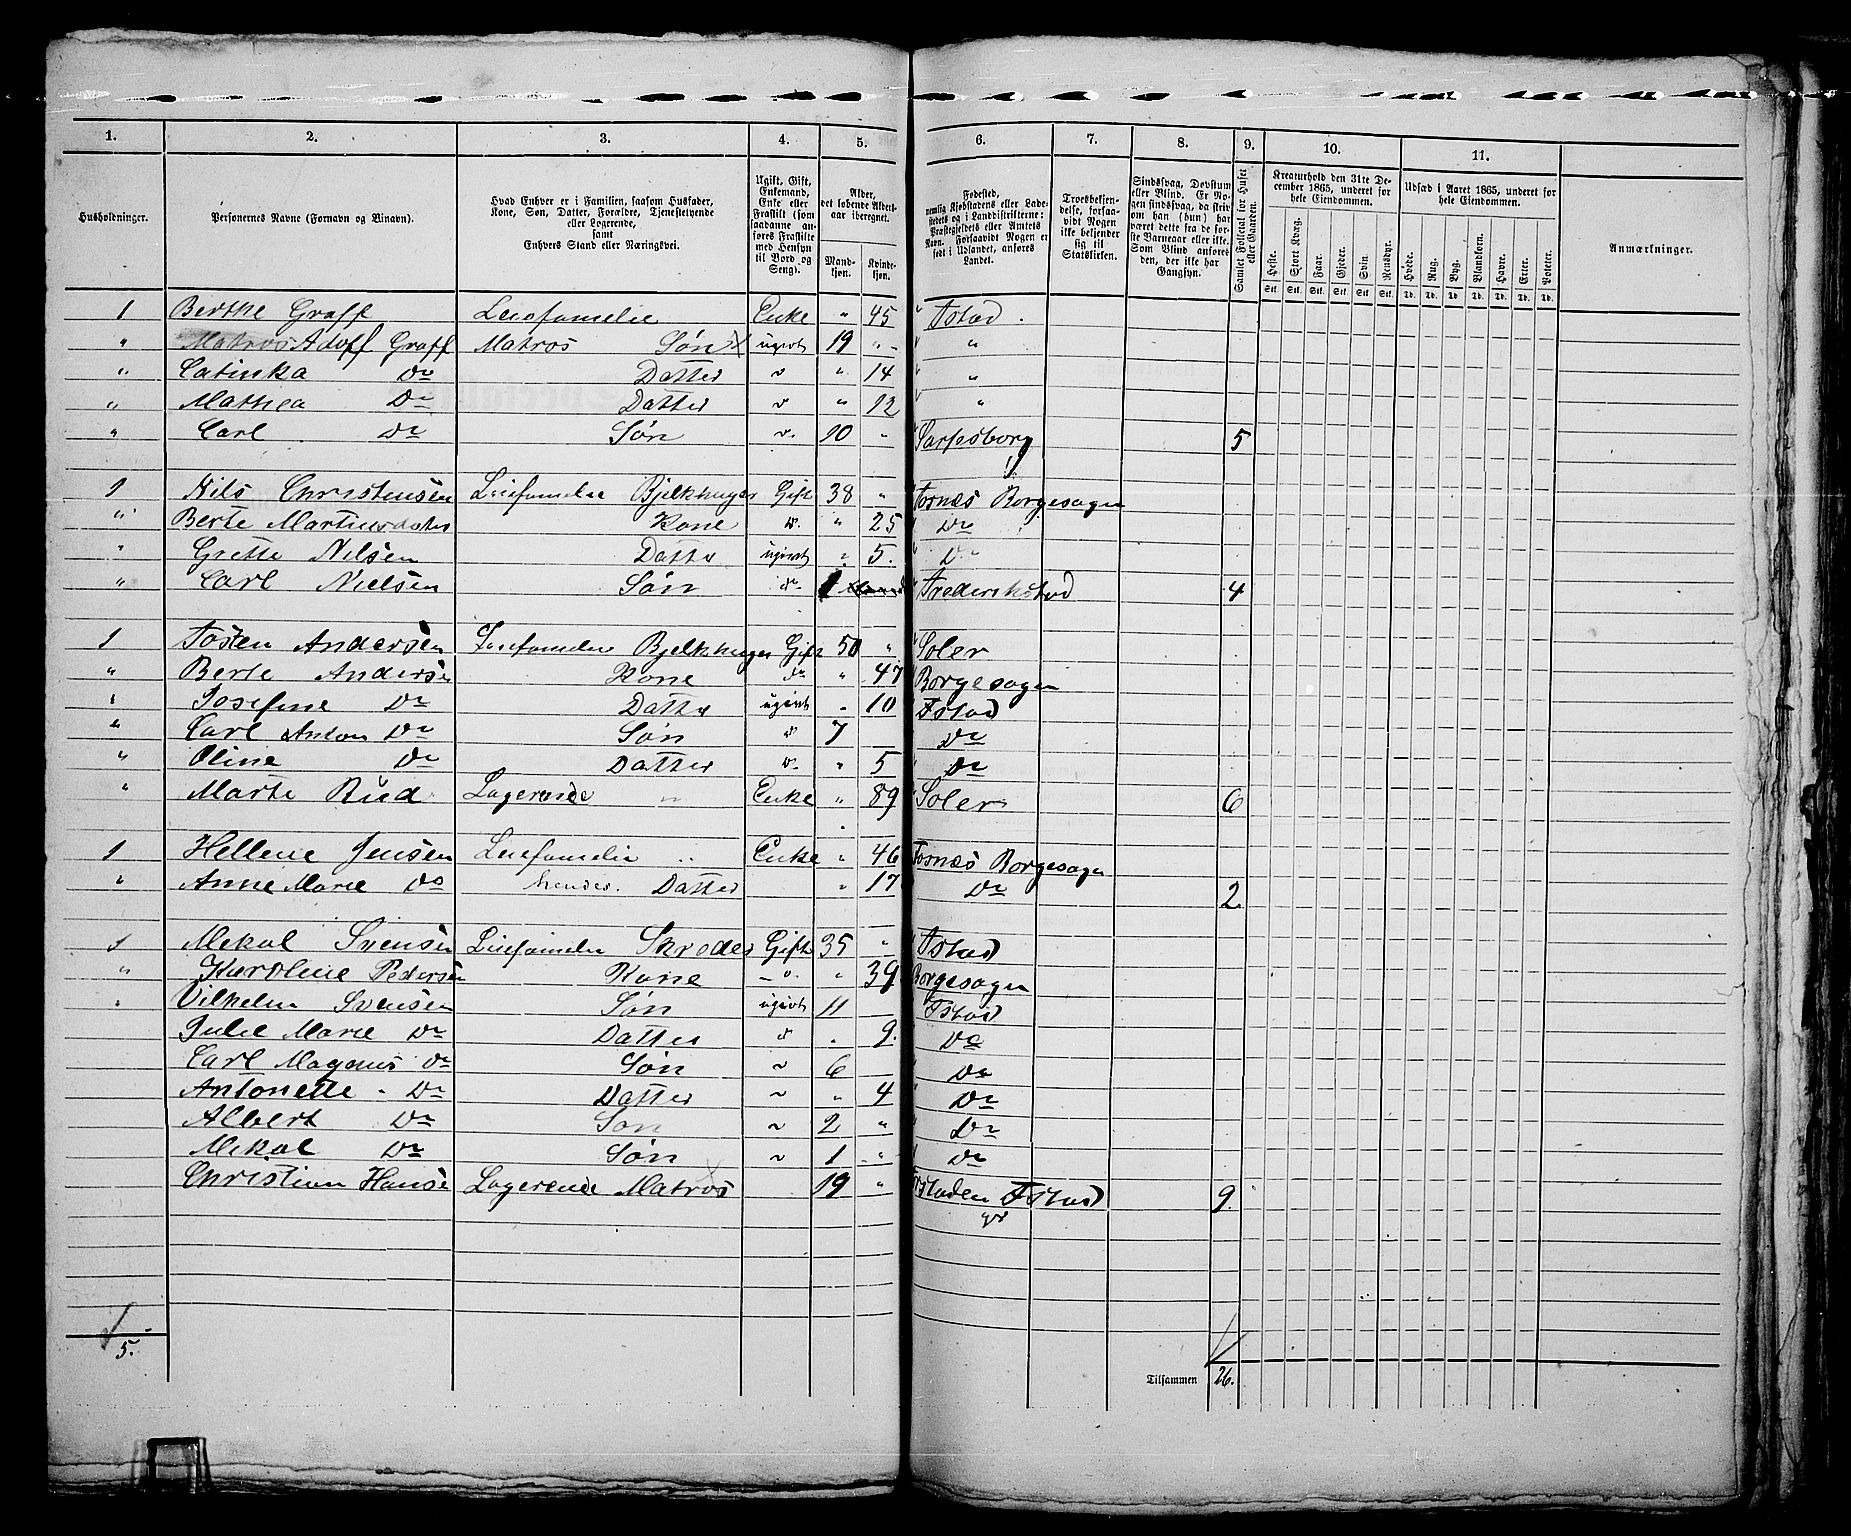 1. 2. 3. 4. 5. 6. 7. 8. 9. 10. 11.
Husholdninger.
Personernes Navne (Fornavn og Binavn).
Hvad Enhver er i Familien, saasom Husfader, Kone, Søn, Datter, Forældre, Tjenestetyende eller Logerende, samt Enhvers Stand eller Næringsvei.
Ugift, Gift, Enkemand, Enke eller Fraskilt (som saadanne anføres Fraskilte med Hensyn til Bord og Seng).
Alder, det løbende Aldersaar iberegnet.
Mandkjøn. Kvindekjøn.
Fødested, nemlig Kjøbstadens eller Ladestedets og i Landdistrikterne: Præstegjeldets eller Amtets Navn. Forsaavidt Nogen er født i Udlandet, anføres Landet.
Troesbekjendelse, forsaavidt Nogen ikke bekjender sig til Statskirken.
Sindssvag, Døvstum eller Blind. Er Nogen sindssvag, da skriv om han (hun) har været dette fra de første Barneaar eller ikke. Som Blind anføres den, der ikke har Gangsyn.
Samlet Folketal for Huset eller Gaarden.
Kreaturhold den 31te December 1865, underet for hele Eiendommen.
Heste. Stort Kvæg. Faar. Gjeder. Svin. Rensdyr.
Stk. Stk. Stk. Stk. Stk. Stk.
Udsæd i Aaret 1865, underet for hele Eiendommen.
Hvede. Rug. Byg. Blandkorn. Havre. Erter. Poteter.
Td. Td. Td. Td. Td. Td. Td.
Anmærkninger.
1 Berthe Graff Leiefamelie Enke " 45 " Fstad.
" Matros Adolf Graff Matros Søn ugivt 19 " " "
" Catinka Do Datter " " 14 " "
" Mathea Do Datter " " 12 "
" Carl Do Søn " 10 " Sarpsborg 5
1 Nils Christensen Leiefamelie Bjelkhuger Gift 38 " Tornæs Borgesogn
" Berte Martinusdater Kone do " 25 Do
" Grette Nilsen Datter ugivt " 5. Do
" Carl Nielsen Søn do 1 Frederikstad 4
1 Tosten Andersen Leiefamelie Bjelkhuger Gift 50 " Soler
" Berte Andersen Kone do " 47 Borgesogn
" Josefine Do Datter ugivt " 10 Fstad
" Carl Anton Do Søn do 7 Do
" Oline Do Datter do " 5 Do
" Marte Rud Logerende " Enke " 89 Soler 6
1 Hellene Jensen Leiefamelie " Enke " 46 Tornæs Borgesogn
" Anne Marie Do hendes Datter " 17 Do 2
1 Mekal Svensen Leiefamelie Skreder Gift 35 " Fstad
" Karoline Pedersen Kone do " 39 Borgesogn
" Vilhelm Svensen Søn ugivt 11 Fstad
Julie Marie Do Datter do " 9. Do
Carl Magnus Do Søn " 6 Do
Antonette Do Datter " " 4 Do
Albert Do Søn " 2 " Do
Mekal Do Søn " 1 " Do
Christian Hanse Logerende Matros 19 " Fstad 9.
5.
Tilsammen 26.